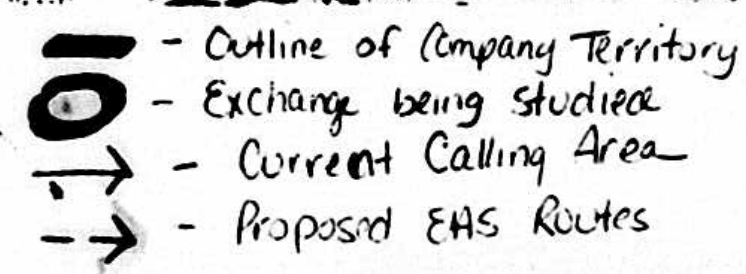 - Outline of Company Territory
- Exchange being studied
- Current Calling Area
- Proposed EAS Routes